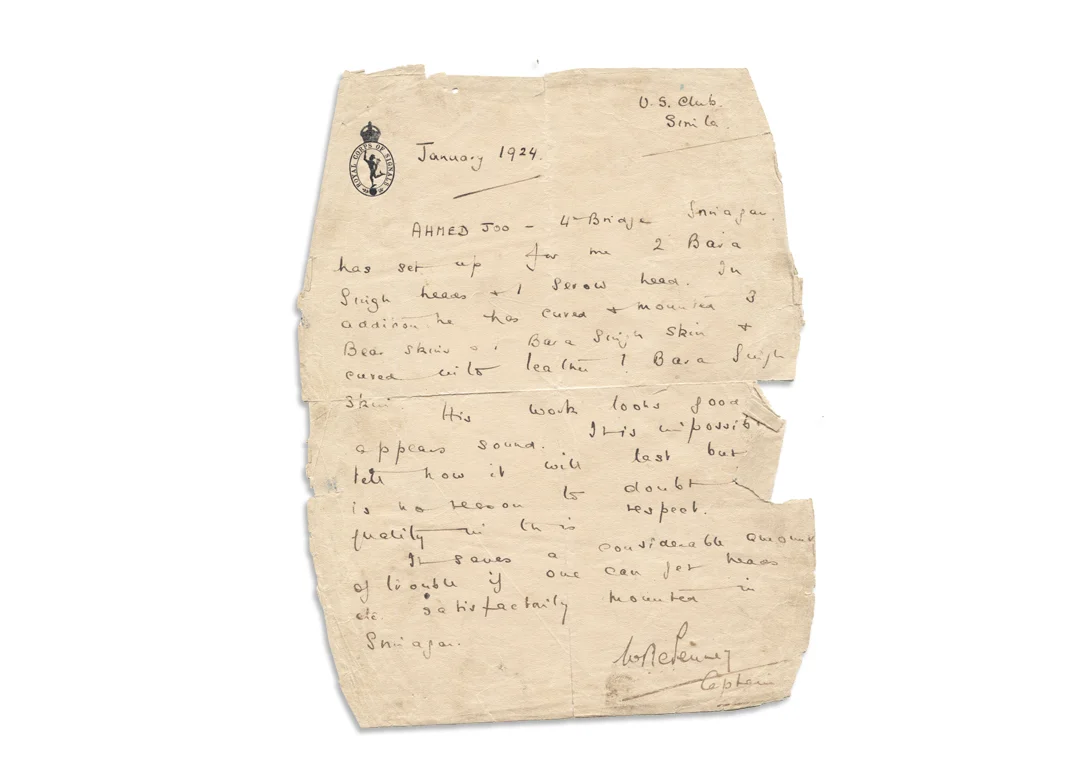 U.S. Club.
Simla.
ROYAL CORPS OF SIGNALS
January 1924.
AHMED JOO – 4th Bridge Srinagar.
has set up for me 2 Bara
Singh heads + 1 Serow head. In
addition he has cured + mounted 3
Bear skins + 1 Bara Singh skin +
cured into leather 1 Bara Singh
skin. His work looks good
appears sound. It is impossib
tell how it will last but
is no reason to doubt
quality in this respect.
It saves a considerable amount
of trouble if one can get heads
etc. satisfactorily mounted in
Srinagar.
Captain